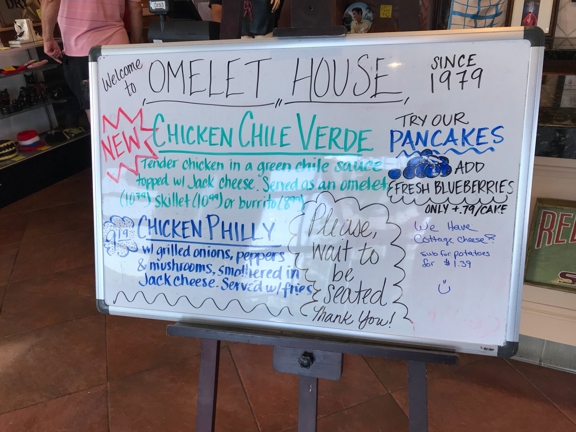 Welcome
to
"OMELET HOUSE"
SINCE
1979
NEW
CHICKEN CHILE VERDE
Tender chicken in a green chile sauce
topped w/ Jack cheese. Served as an omelet
skillet (10⁹⁹) or burrito
CHICKEN PHILLY
w/ grilled onions, peppers
& mushrooms, smothered in
Jack cheese. Served w/ fries
Please,
wait to
be
seated
Thank You!
TRY OUR
PANCAKES
ADD
FRESH BLUEBERRIES
ONLY +.79/CAKE
We Have
Cottage cheese!
sub for potatoes
for $1.39